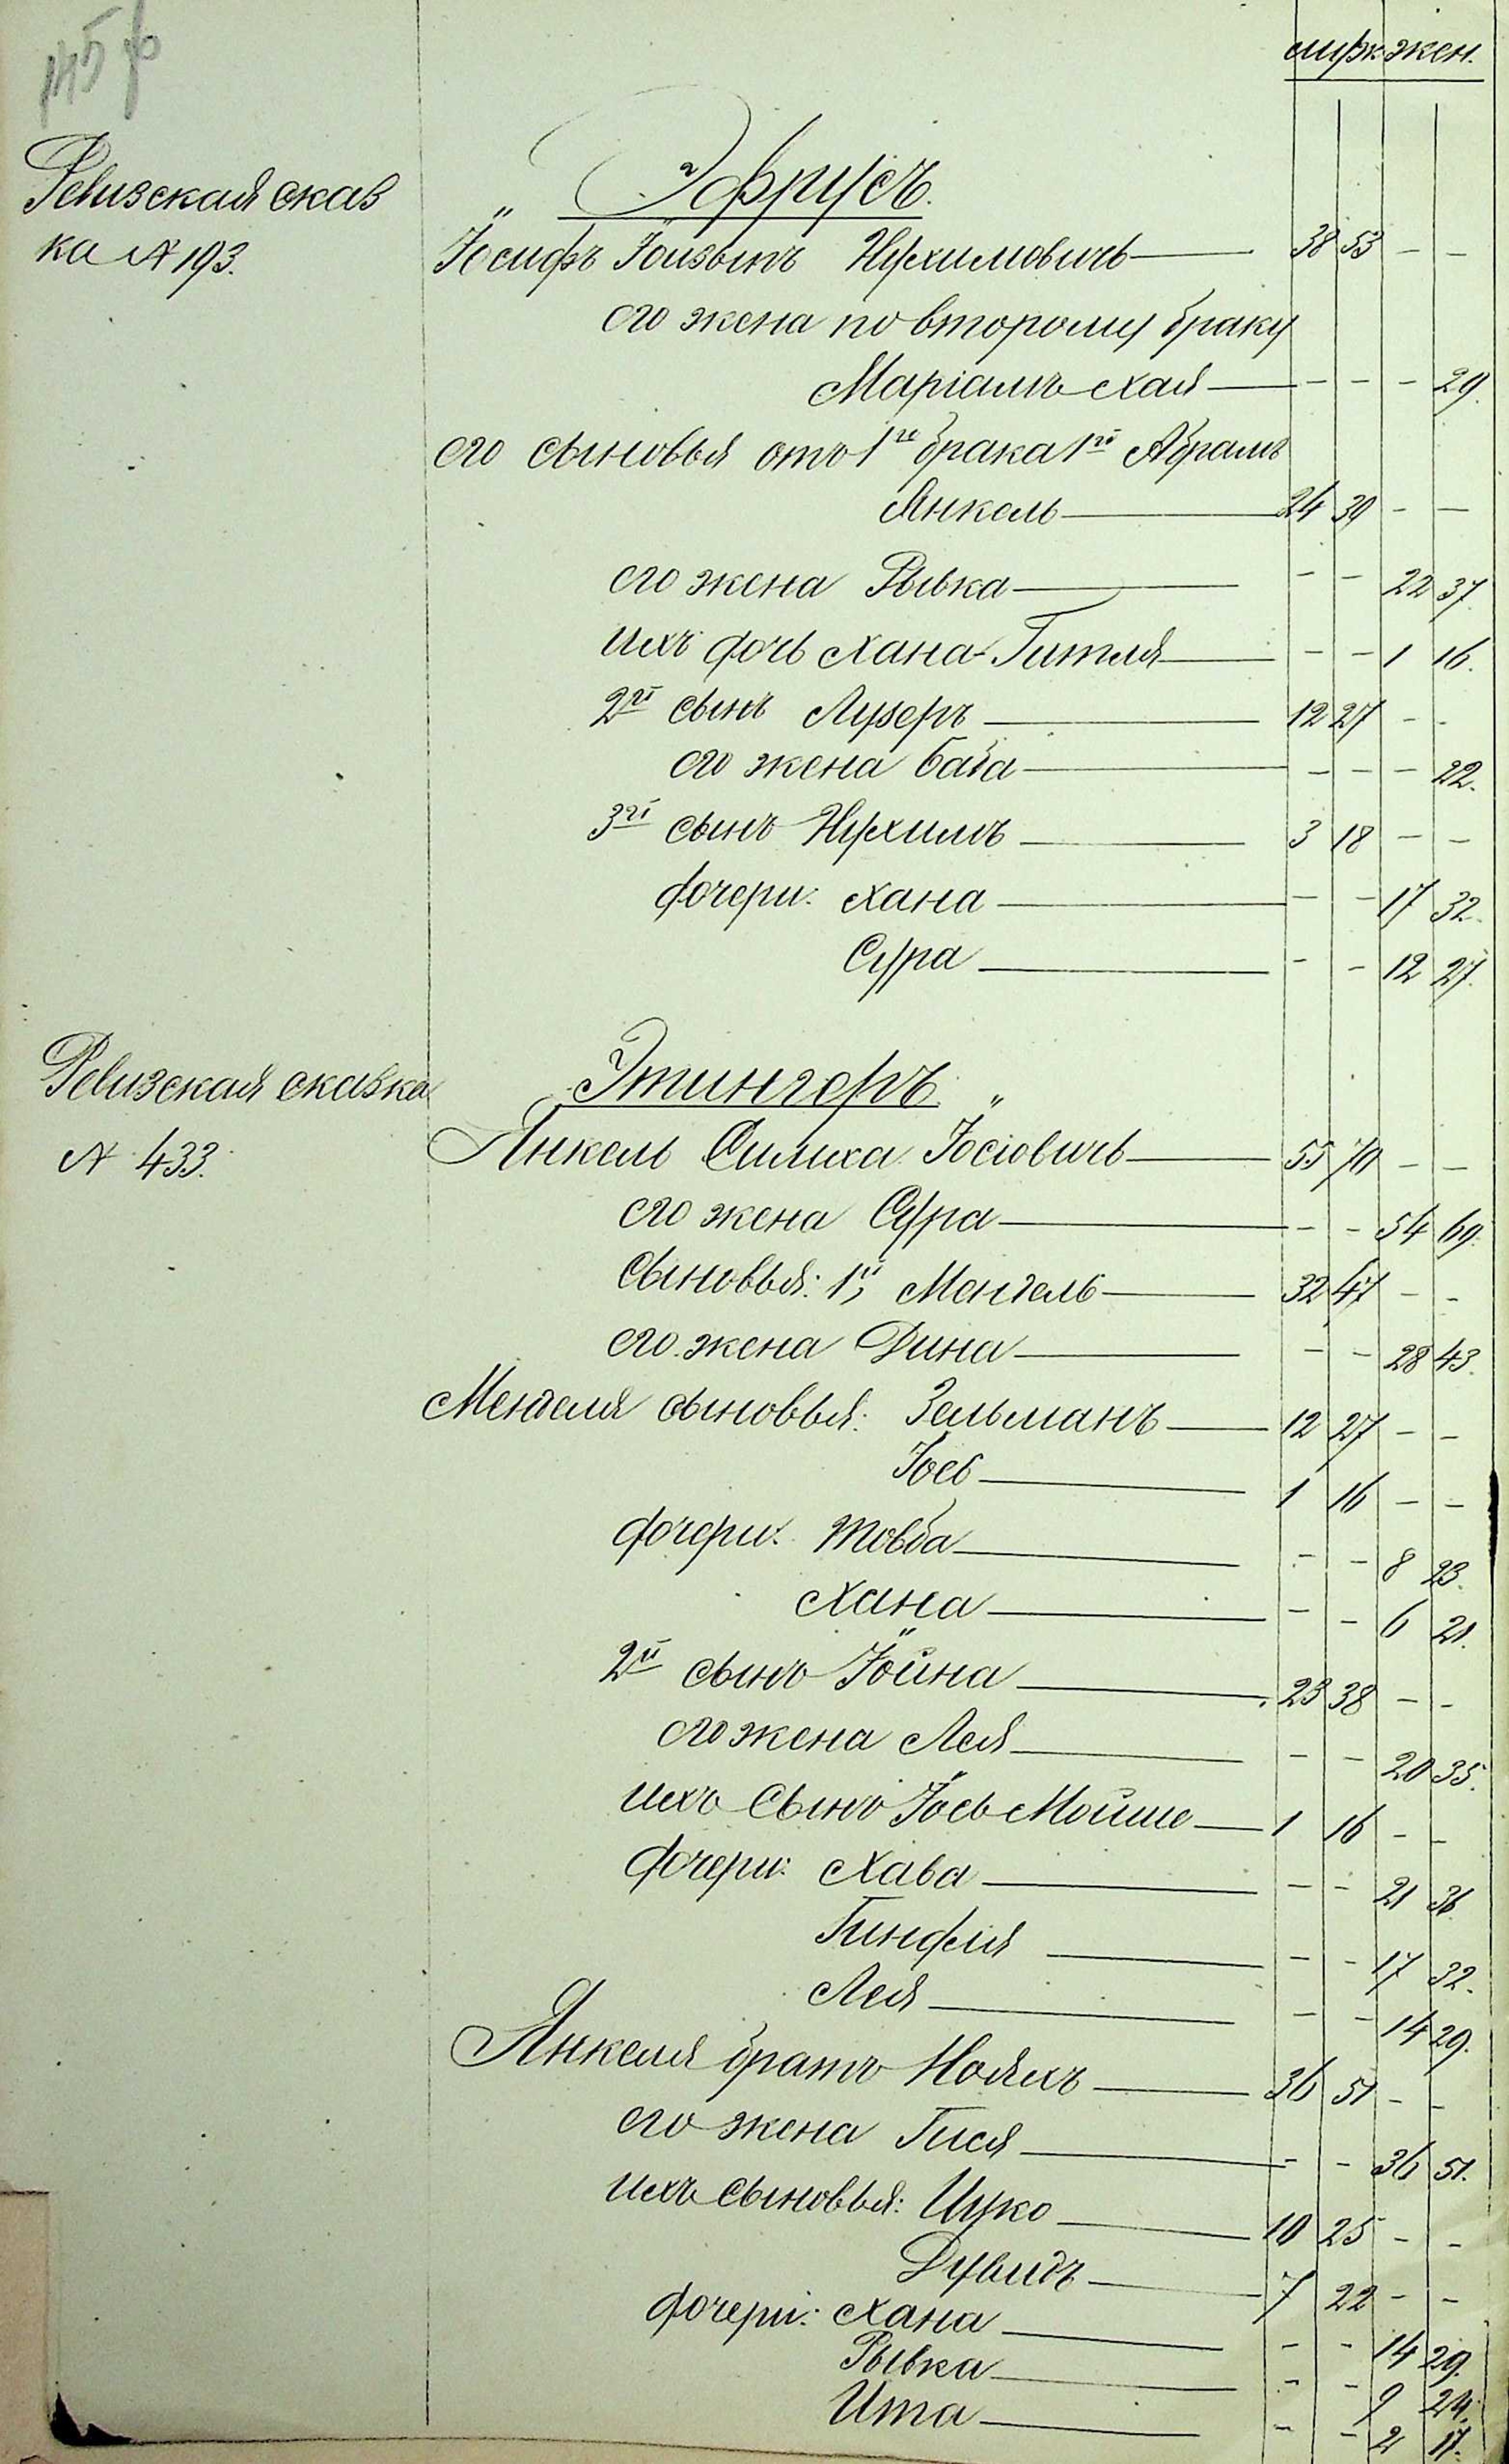 145 р
муж. жен.
Ревизская сказ
ка № 193.
Эфрусъ.
Іосифъ Іойзыпъ Нухимовичъ — 38 53 - -
его жена по второму браку
Маріамъ Хая — - - - 29.
его сыновья отъ 1го брака 1й Абрамъ
Янкель — 24 39 - -
его жена Рывка — - - 22 37.
ихъ дочь Хана-Гитля — - - 1 16.
2й сынъ Лузеръ — 12 27 - -
его жена Баба — - - - 22.
3й сынъ Нухимъ — 3 18 - -
дочери: Хана — - - 17 32.
Сура — - - 12 27.
Ревизская сказка
№ 433.
Этингеръ.
Янкель Симха Іосіовичъ — 55 70 - -
его жена Сура — - - 54 69.
сыновья: 1й, Мендель — 32 47 - -
его жена Дина — - - 28 43.
Менделя сыновья: Зельманъ — 12 27 - -
Іось — 1 16 - -
дочери: Товба — - - 8 23.
Хана — - - 6 21.
2й сынъ Іойна — 23 38 - -
его жена Лея — - - 20 35.
ихъ сынъ Іось-Мойше — 1 16 - -
дочери: Хава — - - 21 36.
Гиндля — - - 17 32.
Лея — - - 14 29.
Янкеля братъ Нояхъ — 36 51 - -
его жена Гися — - - 36 51.
ихъ сыновья: Ицко — 10 25 - -
Дувидъ — 7 22 - -
дочери: Хана — - - 14 29.
Рывка — - - 9 24.
Ита — - - 2 17.